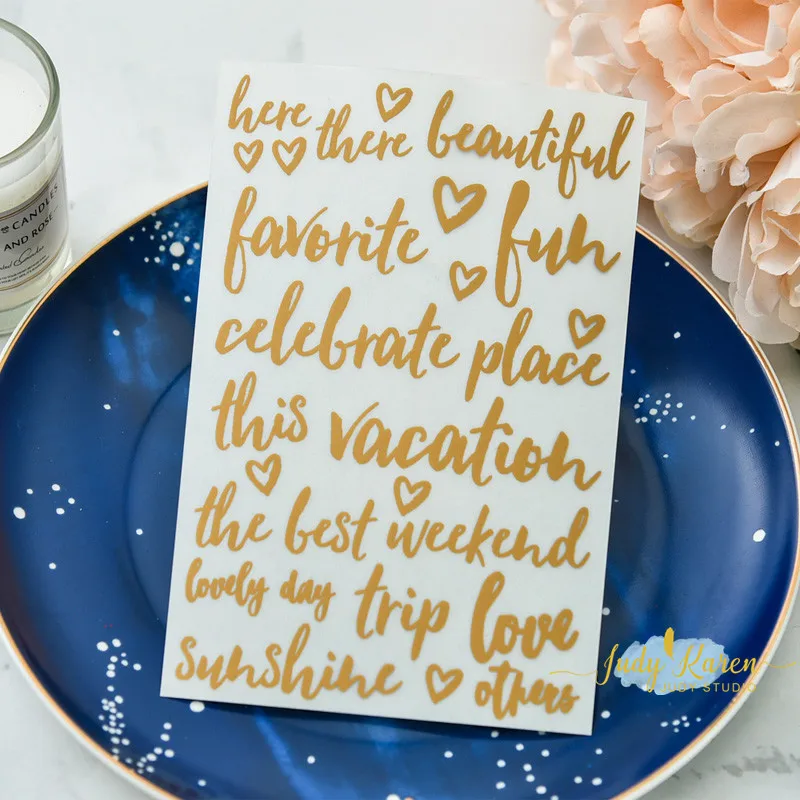 here there beautiful
favorite fun
celebrate place
this vacation
the best weekend
lovely day trip love
sunshine others
CANDLES
AND ROSE
Judy Karen